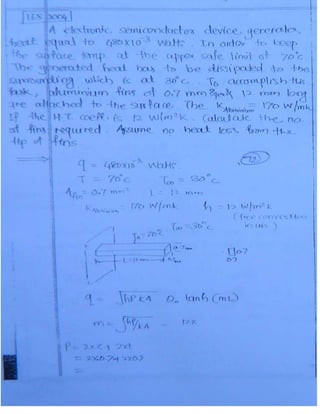 IES 2004
A electronic semiconductor device, generates
heat equal to 480x10⁻³ Watts. In order to keep
the surface temp. at the upper safe limit of 70°c
The generated heat has to be dissipated to the
surrounding which is at 30°c. To accomplish this
task, aluminium fins of 0.7 mm sq & 12 mm long
are attached to the surface. The K Aluminium = 170 W/mk
If the H.T coeff. is 12 W/m²k. Calculate the no.
of fins required. Assume no heat loss from the
tip of fins.
q = 480x10⁻³ watts
T = 70°c T∞ = 30°c
A fin = 0.7 mm² L = 12 mm
K Aluminium = 170 W/mk h = 12 W/m²k
(free convection
in air)
T∞ = 30°c
L = 12 mm
q = √hPKA θ₀ tanh (mL)
m = √hP/KA = 12x
P = 2x
=